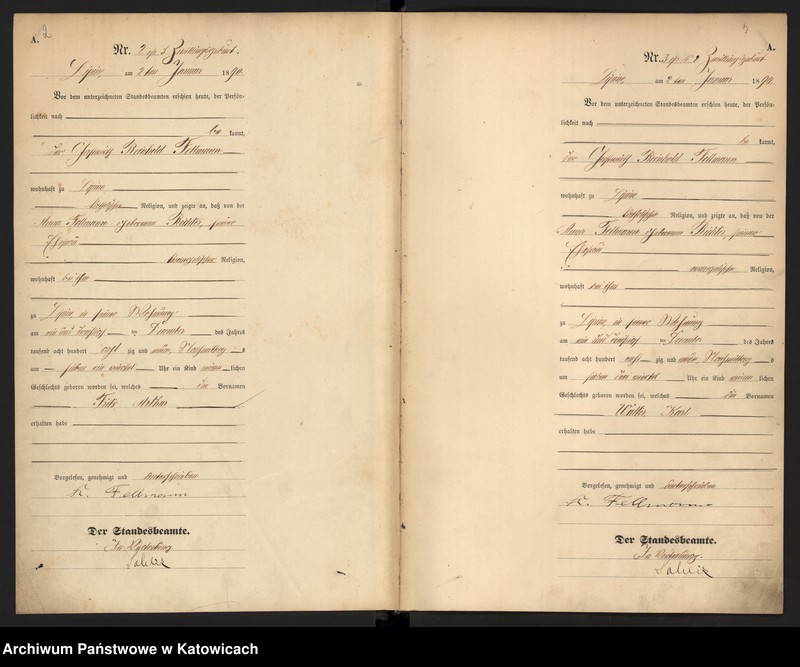 2
A.
Nr. 2 Zwillingsgeburt.
am 2ten Januar 1890.
Vor dem unterzeichneten Standesbeamten erschien heute, der Persön-
lichkeit nach
be kannt,
der Reinhold Fellmann
wohnhaft zu
Religion, und zeigte an, daß von der
Fellmann geborenen seiner
Ehefrau
evangelischer Religion,
wohnhaft bei ihm
zu in seiner Wohnung
am ein und dreißig ten Dezember des Jahres
tausend acht hundert acht zig und neun, Nachmittags
um sieben ein viertel Uhr ein Kind männ lichen
Geschlechts geboren worden sei, welches die Vornamen
Fritz Arthur
erhalten habe
Vorgelesen, genehmigt und unterschrieben
R. Fellmann
Der Standesbeamte.
In Vertretung
3
A.
Nr. 3 Zwillingsgeburt
am 2ten Januar 1890.
Vor dem unterzeichneten Standesbeamten erschien heute, der Persön-
lichkeit nach
be kannt,
der Reinhold Fellmann
wohnhaft zu
Religion, und zeigte an, daß von der
Fellmann geborenen seiner
Ehefrau
evangelischer Religion,
wohnhaft bei ihm
zu in seiner Wohnung
am ein und dreißig ten Dezember des Jahres
tausend acht hundert acht zig und neun, Nachmittags
um sieben drei viertel Uhr ein Kind männ lichen
Geschlechts geboren worden sei, welches die Vornamen
Walter Karl
erhalten habe
Vorgelesen, genehmigt und unterschrieben
R. Fellmann
Der Standesbeamte.
In Vertretung.
Archiwum Państwowe w Katowicach